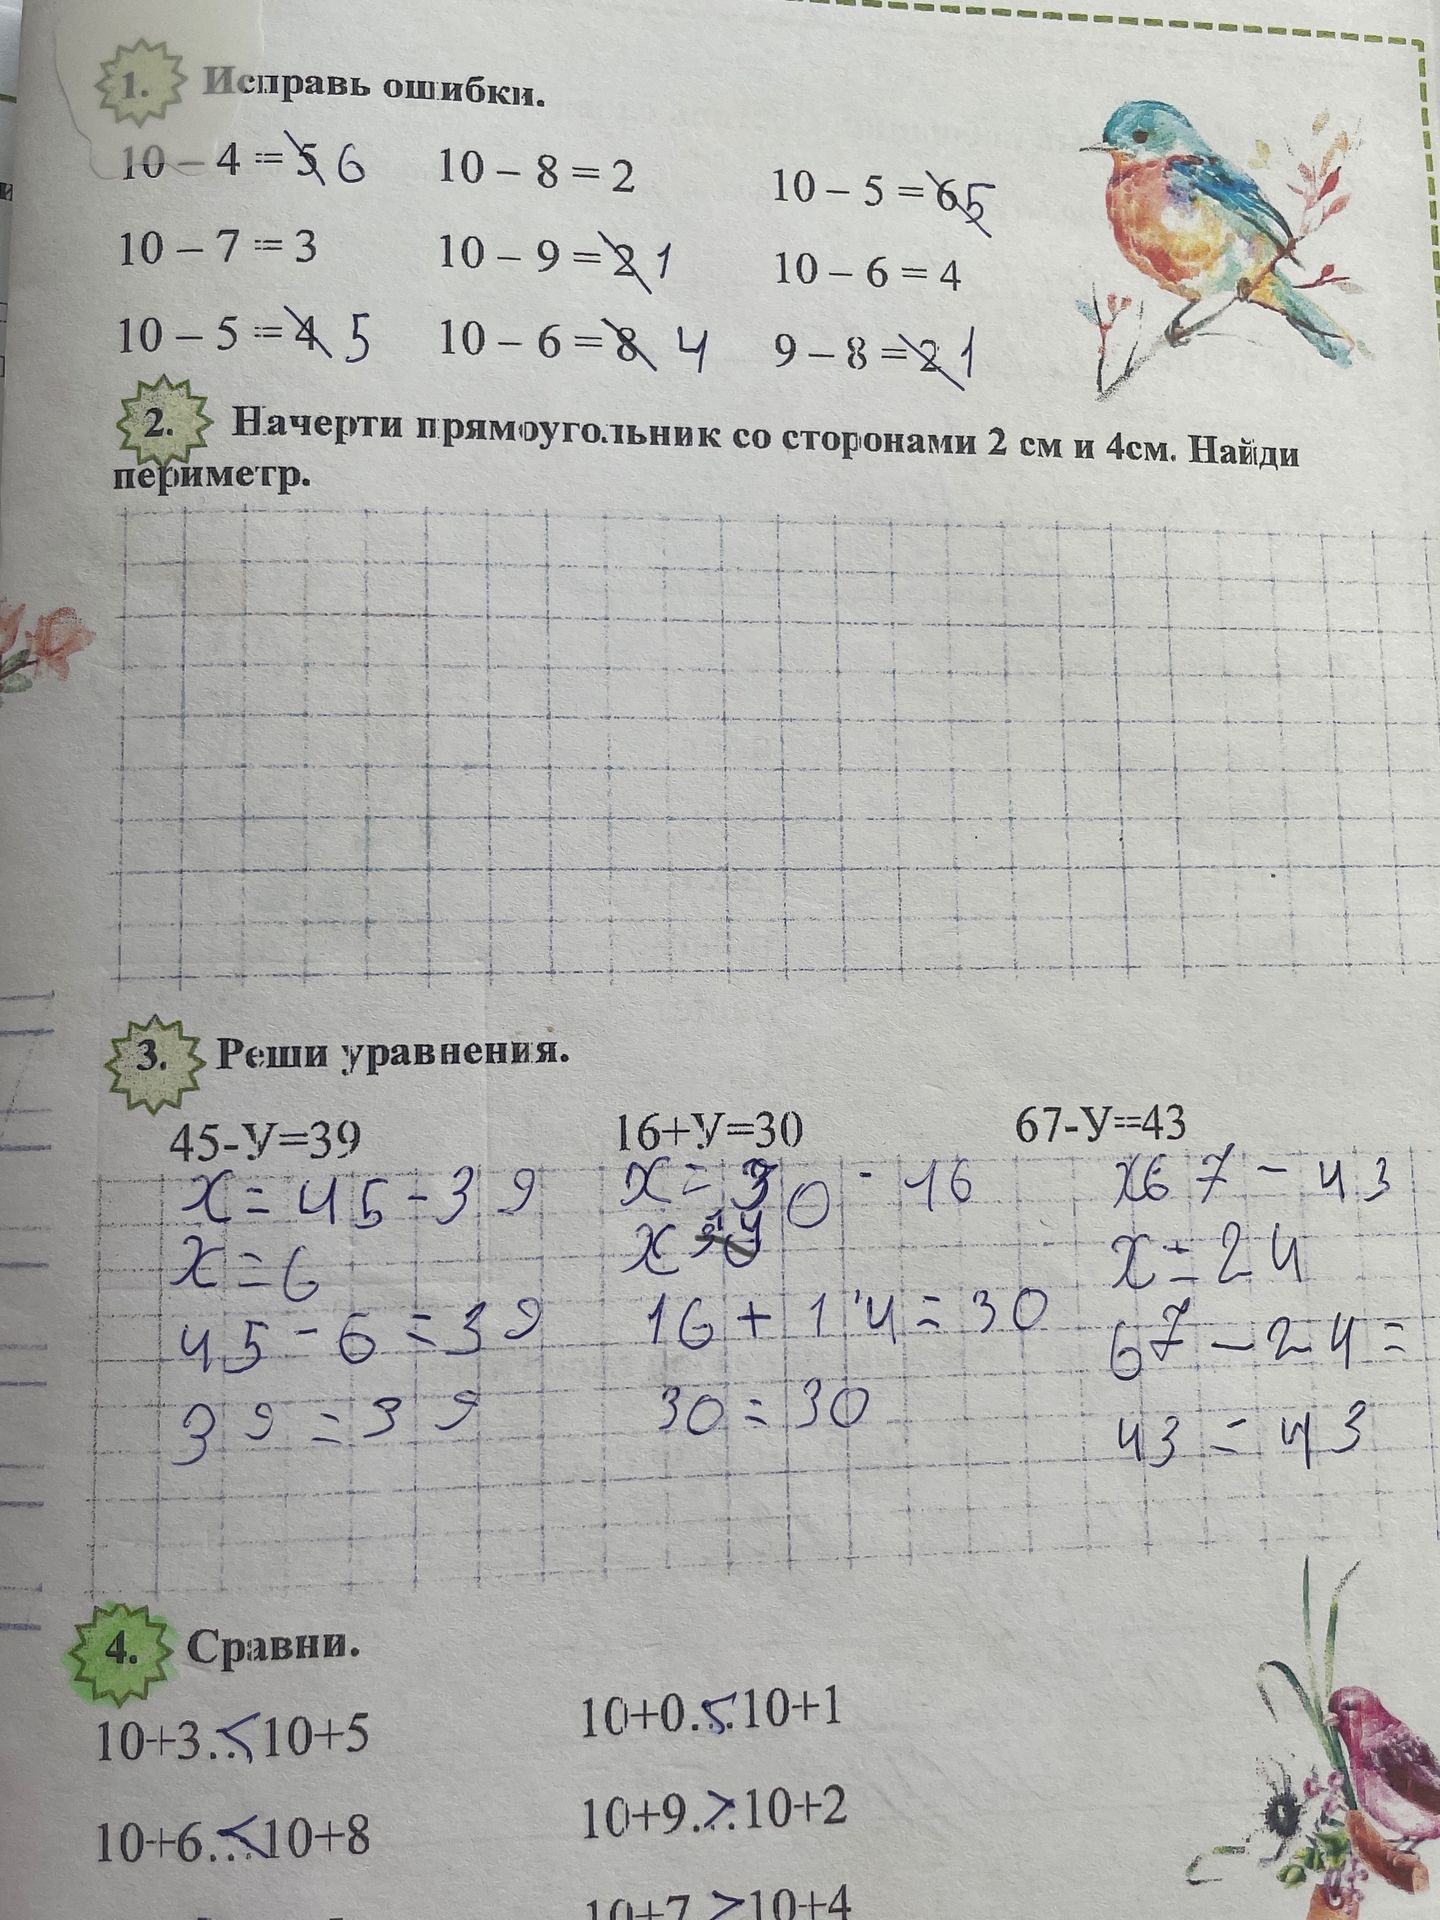 1. Исправь ошибки.
10 – 4 = 5 6 10 – 8 = 2 10 – 5 = 6 5
10 – 7 = 3 10 – 9 = 2 1 10 – 6 = 4
10 – 5 = 4 5 10 – 6 = 8 4 9 – 8 = 2 1
2. Начерти прямоугольник со сторонами 2 см и 4см. Найди
периметр.
3. Реши уравнения.
45-У=39 16+У=30 67-У=43
x = 45 - 39 x = 30 - 16 x 67 - 43
x = 6 x = 14 x = 24
45 - 6 = 39 16 + 14 = 30 67 - 24 =
39 = 39 30 = 30 43 = 43
4. Сравни.
10+3...<10+5 10+0...<10+1
10+6...<10+8 10+9...>10+2
10+7 >10+4